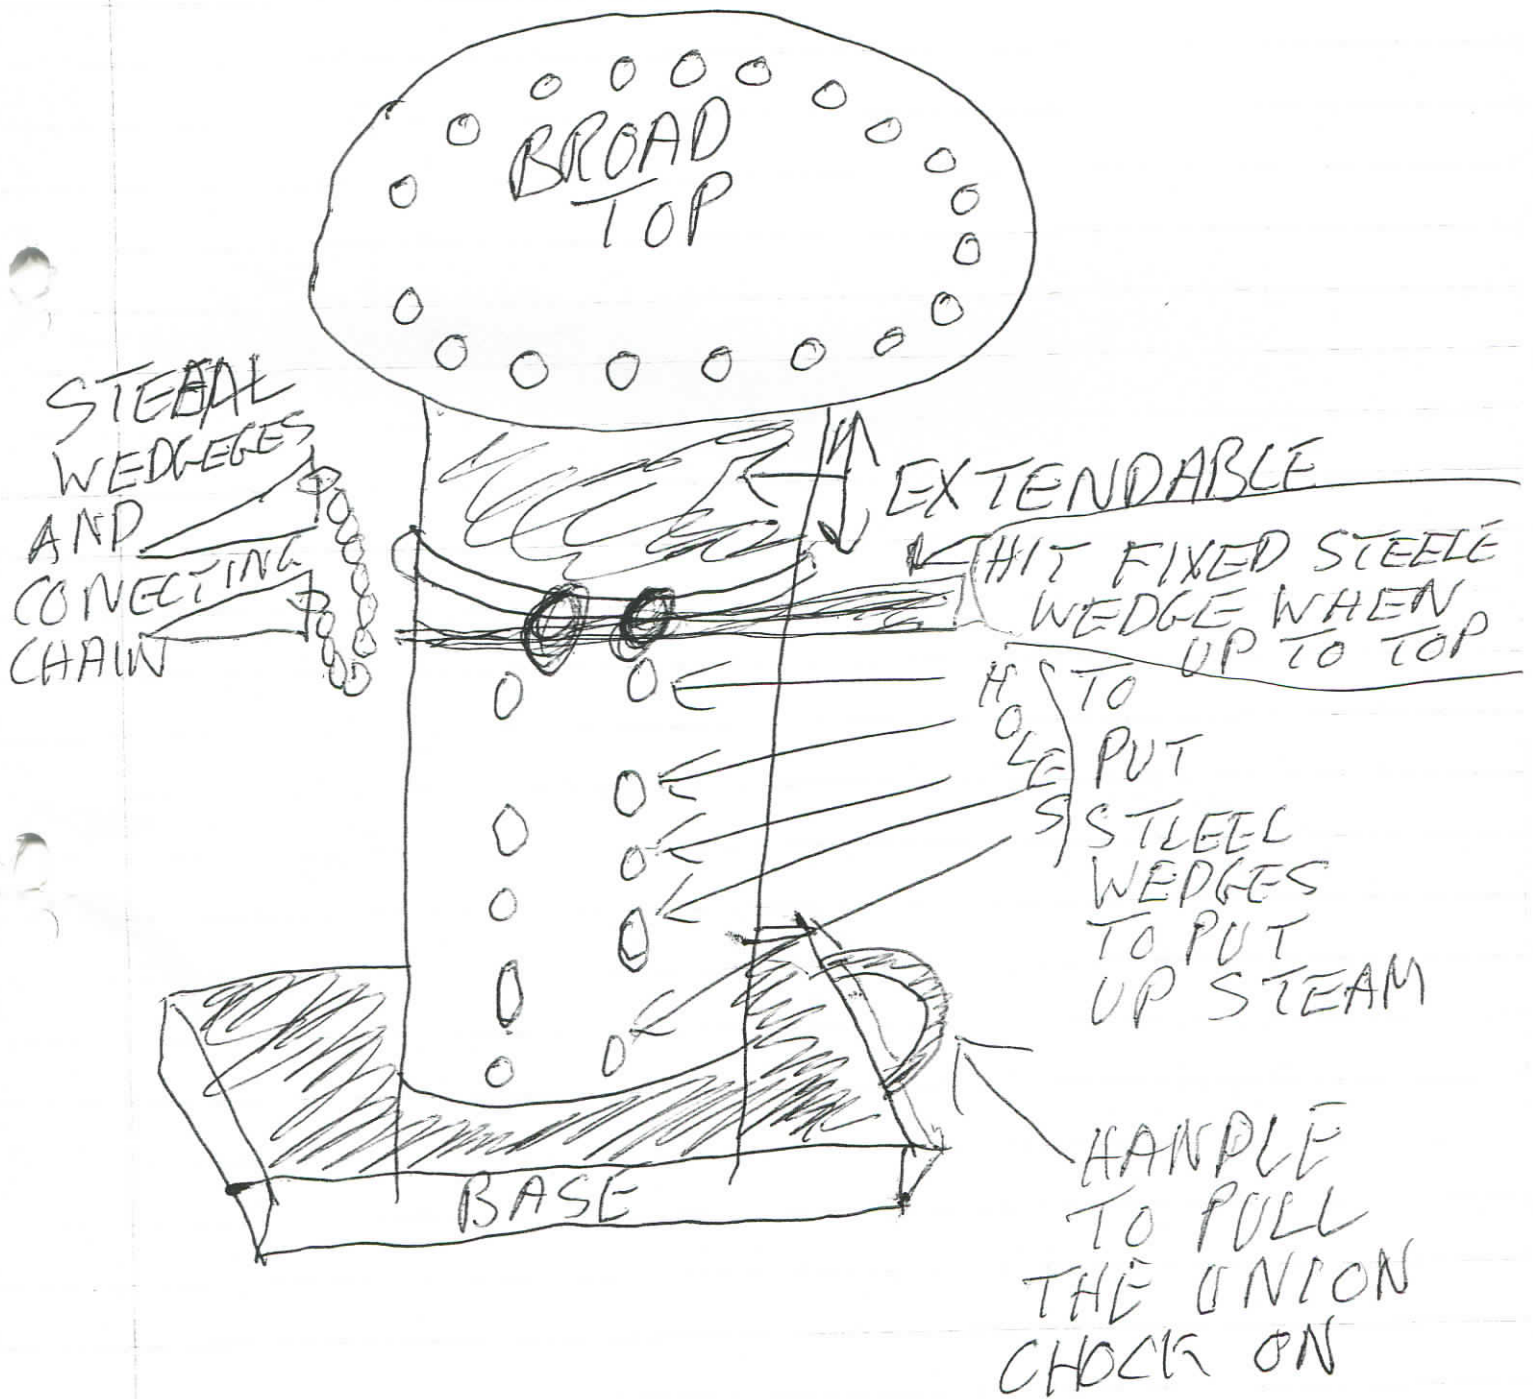 BROAD
TOP
STEEAL
WEDGEGES
AND
CONECTING
CHAIN
EXTENDABLE
HIT FIXED STEELE
WEDGE WHEN
UP TO TOP
HOLES
TO
PUT
STLEEL
WEDGES
TO PUT
UP STEAM
BASE
HANDLE
TO PULL
THE UNION
CHOCK ON